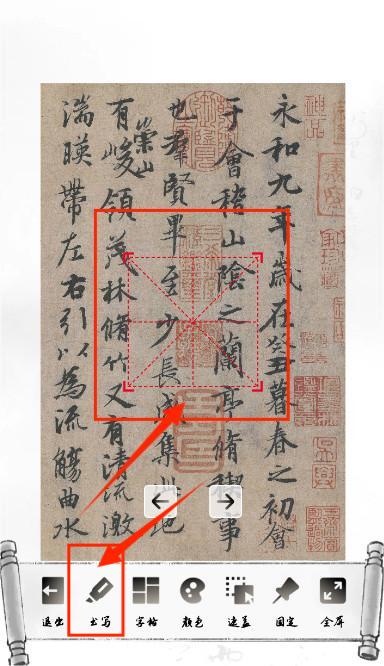 永和九年歲在癸丑暮春之初會
于會稽山陰之蘭亭脩稧事
也羣賢畢至少長咸集此地
有崇山峻領茂林脩竹又有清流激
湍暎帶左右引以為流觴曲水
退出 书写 字帖 颜色 遮盖 固定 全屏